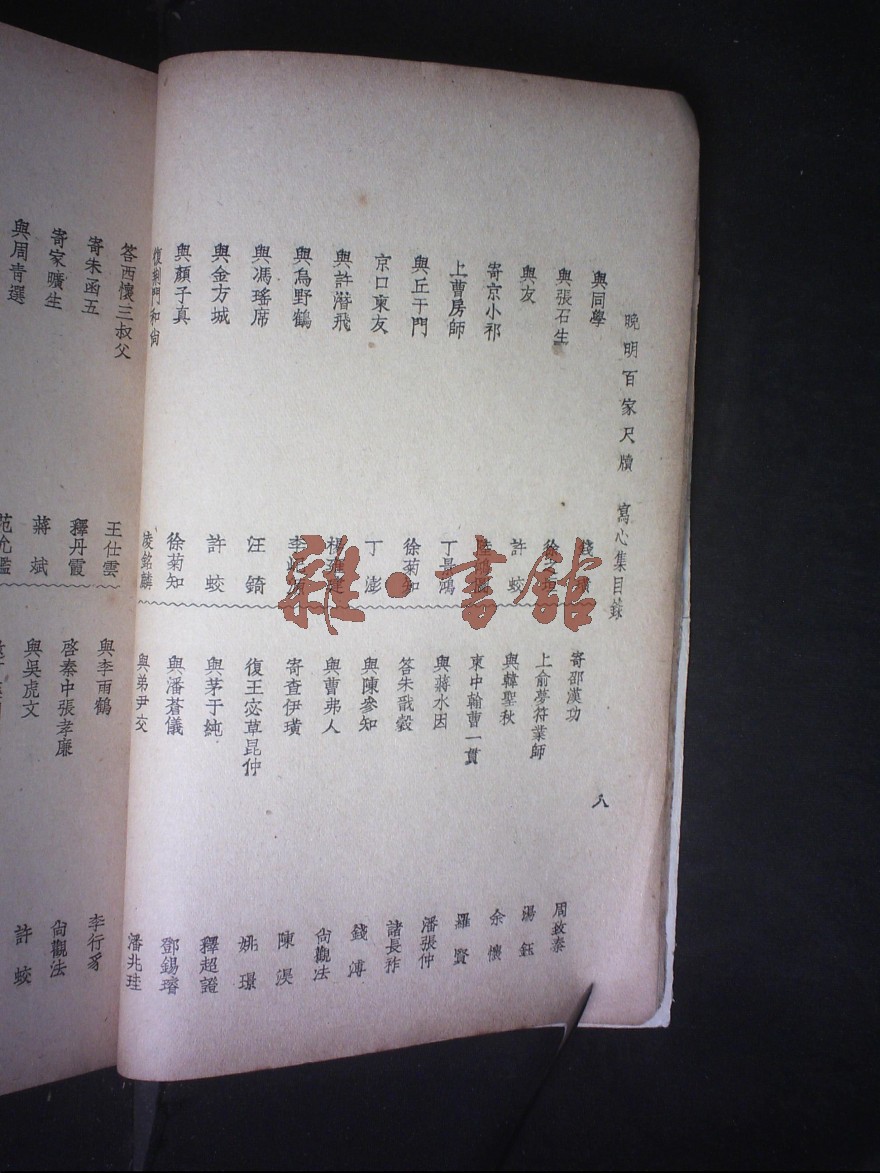 晚明百家尺牘　寫心集目錄
八
與同學
與張石生
與友　許蛟
寄京小祁
上曹房師　丁景鴻
與丘干門　徐菊知
京口柬友　丁澎
與許潛飛
與烏野鶴
與馮瑤席　汪錡
與金方城　許蛟
與顏子真　徐菊知
復荆門和尙　凌銘麟
寄邵漢功　周啟泰
上俞夢符業師　湯鈺
與韓聖秋　余懷
柬中翰曹一貫　羅賢
與蔣水因　潘張仲
答朱戩穀　諸長祚
與陳參知　錢溥
與曹弗人　尙觀法
寄查伊璜　陳淏
復王宓草昆仲　姚璟
與茅于純　釋超證
與潘蒼儀　鄧錫璿
與弟尹交　潘兆珪
答西懷三叔父　王仕雲
寄朱函五　釋丹霞
寄家曠生　蔣斌
與周靑選　范允鑑
與李雨鶴　李行豸
啓秦中張孝廉　尙觀法
與吳虎文　許蛟
雜·書館